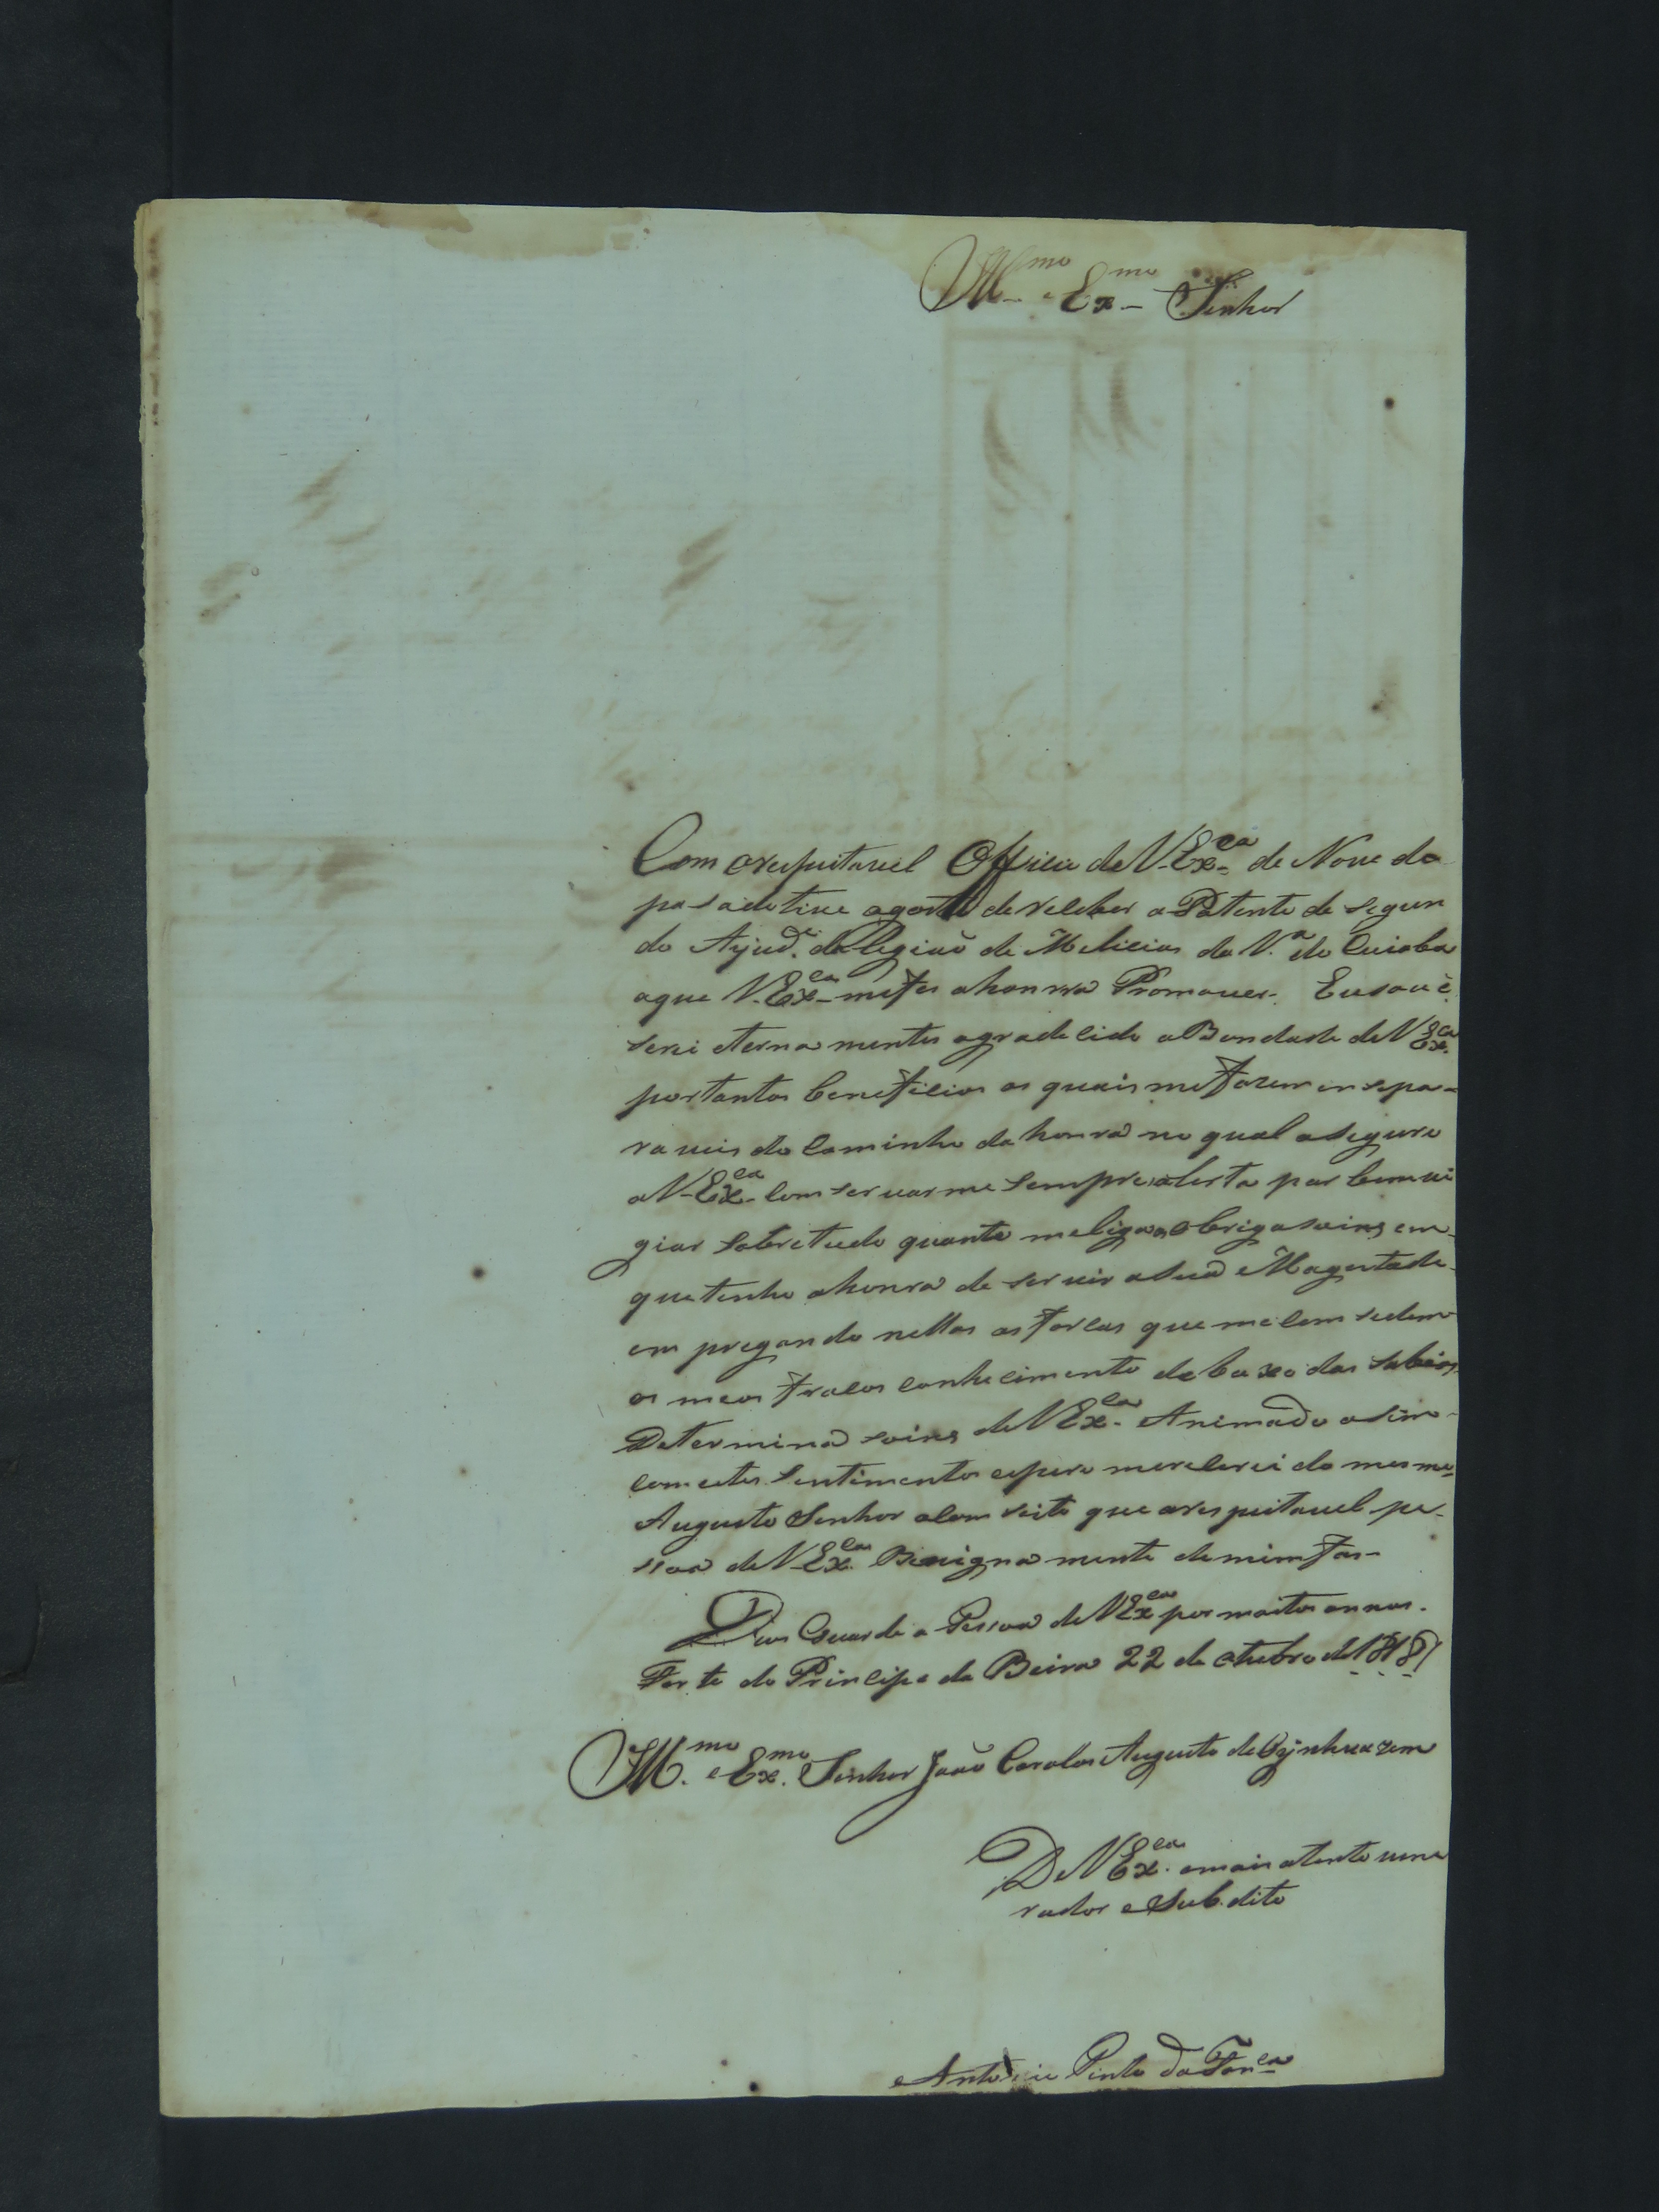 Ill.mo e Ex.mo Senhor
Com orespitavel Officio de V. Ex.ca de Nove do
pasado tive agosto de receber a Patente de Segun
do Ajud.e da Legiaõ de Melicias da V.a do Cuiaba
aque V. Ex.ca mefes ahonrra Promover. Eu sou e
serei eterna mentes agradecido aBondade de V Ex.ca
portantos beneficios os quais mefazem insepa-
raveis do Caminho da honra no qual aseguro
a V. Ex.ca Comservarme sempre alerta par bem vi
giar Sobre tudo quanto meliga as obrigasoins em
que tenho ahonra de servir aSua Magestade
em pregando nellas asforcas que me Comsedem
os meos fracos Conhecimento debaxo das Sabias
Determina soins de V Ex.ca Animado asim
Com estes Sentimentos espero merecerei do mesmo
Augusto Senhor oCom seito que a respeitavel pe-
ssoa de V Ex.ca Benigna mente demim fas-
Deos Guarde a Pessoa de V Ex.ca por muitos annos.
Forte do Principe da Beira 22 de otubro de 1818
Ill.mo e Ex.mo Senhor Joaõ Carolos Augusto de Oeynhuazem
De V Ex.ca omais atento vene
rador e Subdito
Antonio Pinto da Fon.ca